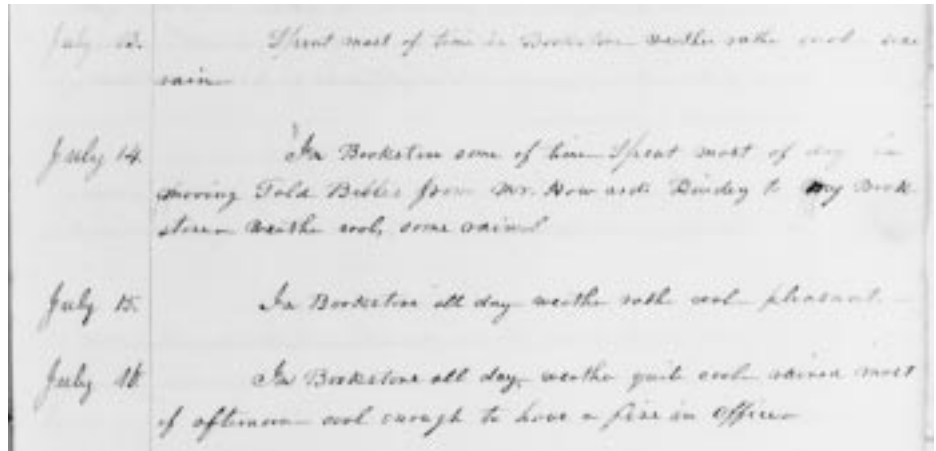 July 13. Spent most of time in Bookstore weather rathe cool some
rain
July 14. In Bookstore some of time Spent most of day in
moving Bibles from Mr. Howards to my Book
store weathe cool, some rain
July 15. In Bookstore all day weathe rathe cool pleasant
July 16. In Bookstore all day weathe quite cool rained most
of afternoon cool enough to have a fire in office